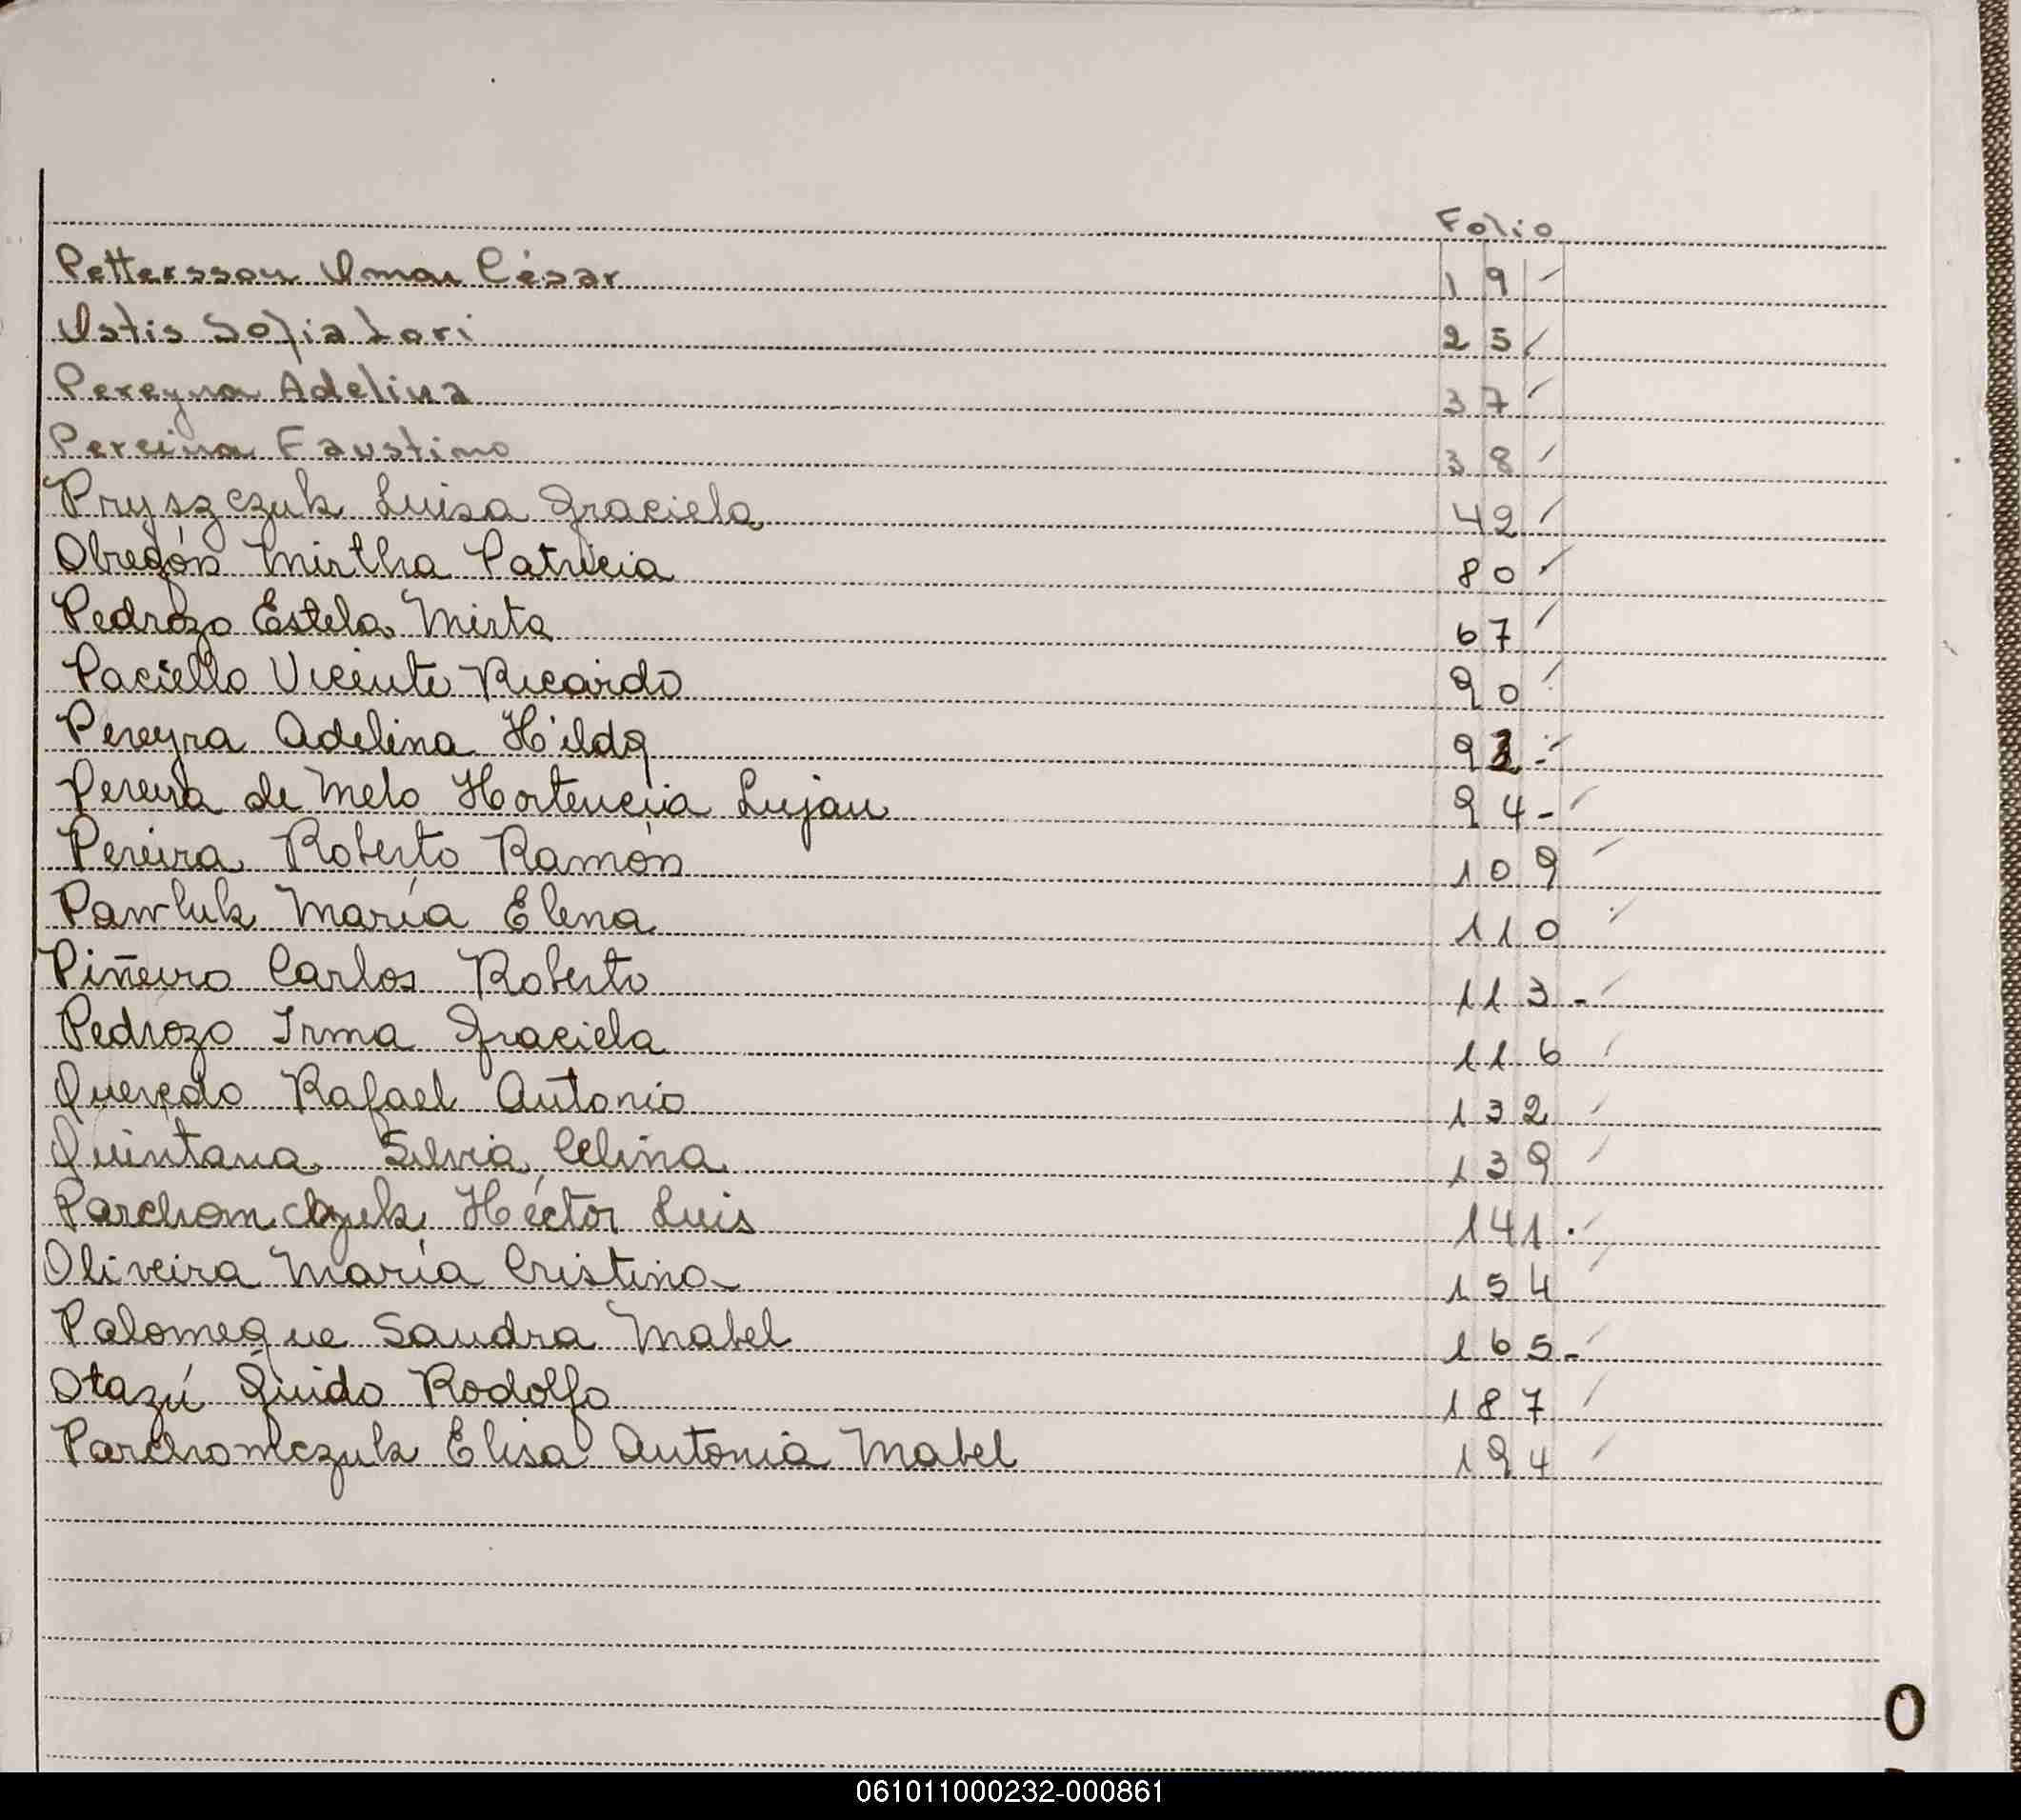 Folio
Pettersson Omar César 19
Ostis Sofia Lori 25
Pereyra Adelina 37
Pereira Faustino 38
Pryszczuk Luisa Graciela 42
Obregón Mirtha Patricia 80
Pedrozo Estela Mirta 67
Paciello Vicente Ricardo 90
Pereyra Adelina Hilda 93
Pereira de Melo Hortencia Lujan 94-
Pereira Roberto Ramón 109
Pawluk María Elena 110
Piñeiro Carlos Roberto 113-
Pedrozo Irma Graciela 116
Quevedo Rafael Antonio 132
Quintana Silvia Celina 139
Parchomczuk Héctor Luis 141.
Oliveira María Cristina 154
Palomeque Sandra Mabel 165-
Otazú Guido Rodolfo 187
Parchomczuk Elisa Antonia Mabel 194
O
061011000232-000861